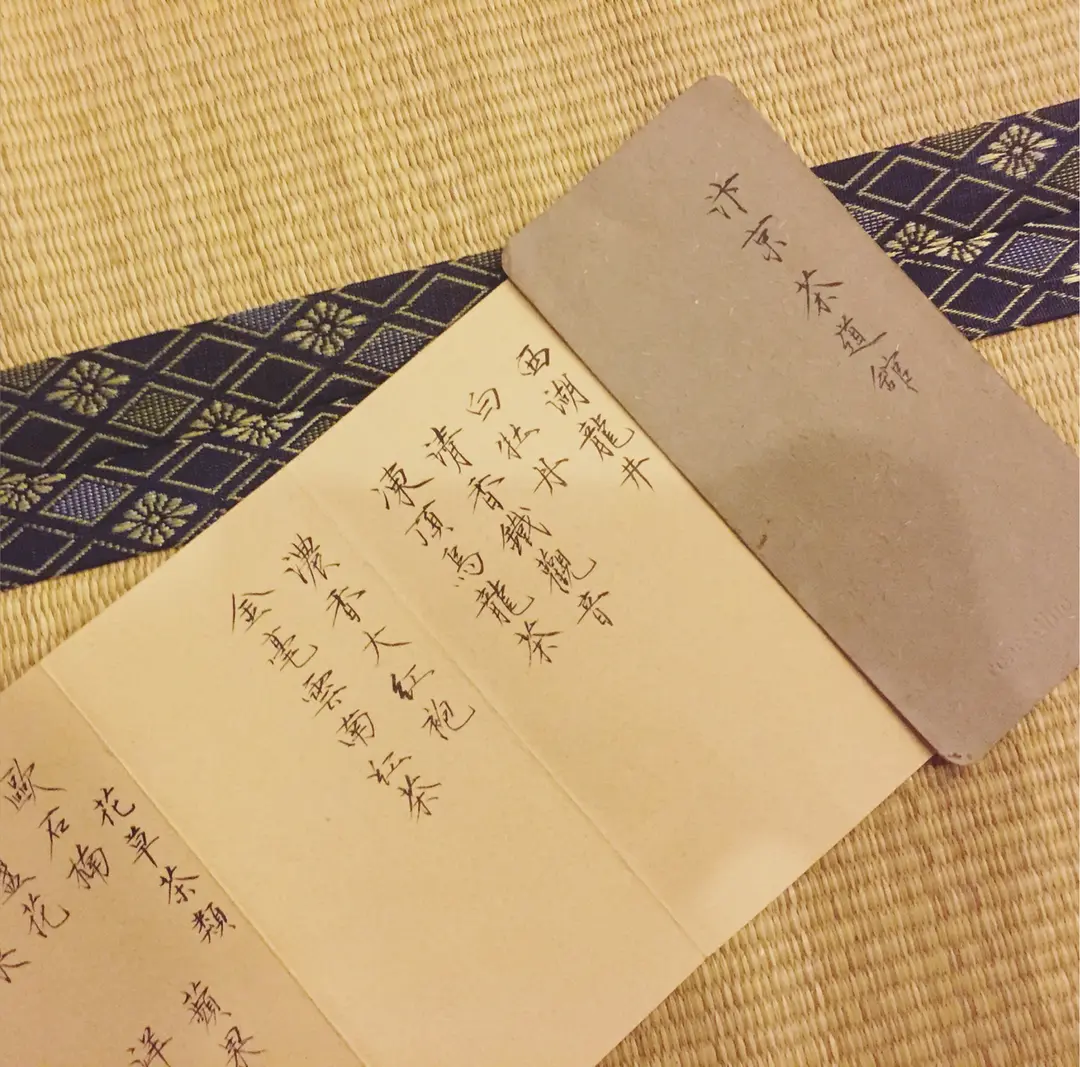 汴京茶道館
西湖龍井
白牡丹
清香鐵觀音
凍頂烏龍茶
濃香大紅袍
金毫雲南紅茶
花草茶類
蘋果
石楠花
洋
歐